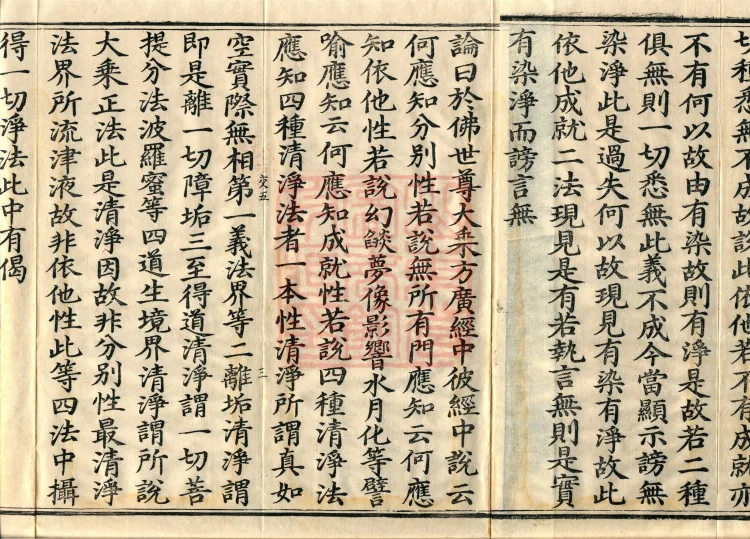 七種悉無不成故説此依他若不有成就亦
不有何以故由有染故則有淨是故若二種
俱無則一切悉無此義不成今當顯示謗無
染淨此是過失何以故現見有染有淨故此
依他成就二法現見是有若執言無則是實
有染淨而謗言無
論曰於佛世尊大乘方廣經中彼經中説云
何應知分別性若説無所有門應知云何應
知依他性若説幻燄夢像影響水月化等譬
喻應知云何應知成就性若説四種清淨法
應知四種清淨法者一本性清淨所謂真如
空實際無相第一義法界等二離垢清淨謂
即是離一切障垢三至得道清淨謂一切菩
提分法波羅蜜等四道生境界清淨謂所説
大乘正法此是清淨因故非分別性最清淨
法界所流津液故非依他性此等四法中攝
得一切淨法此中有偈